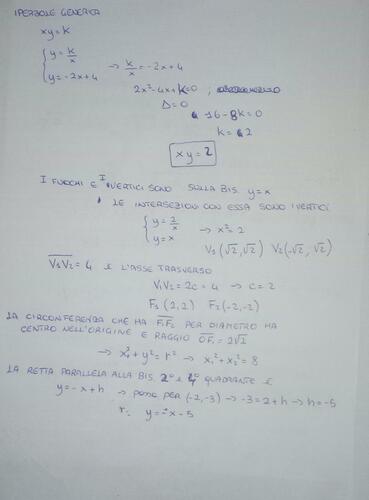 IPERBOLE GENERICA
xy = k
{ y = k/x
{ y = -2x+4 → k/x = -2x+4
2x² - 4x + k = 0 ;
Δ = 0
16 - 8k = 0
k = 2
xy = 2
I FUOCHI E I VERTICI SONO SULLA BIS. y = x
LE INTERSEZIONI CON ESSA SONO I VERTICI
{ y = 2/x
{ y = x → x² = 2
V₁ (√2, √2) V₂ (-√2, √2)
V₁V₂ = 4 È L'ASSE TRASVERSO
V₁V₂ = 2c = 4 → c = 2
F₁ (2,2) F₂ (-2,-2)
LA CIRCONFERENZA CHE HA F₁F₂ PER DIAMETRO HA
CENTRO NELL'ORIGINE E RAGGIO OF₁ = 2√2
→ x² + y² = r² → x₁² + x₂² = 8
LA RETTA PARALLELA ALLA BIS. 2° E 4° QUADRANTE È
y = -x + h → passa PER (-2,-3) → -3 = 2 + h → h = -5
r: y = -x - 5